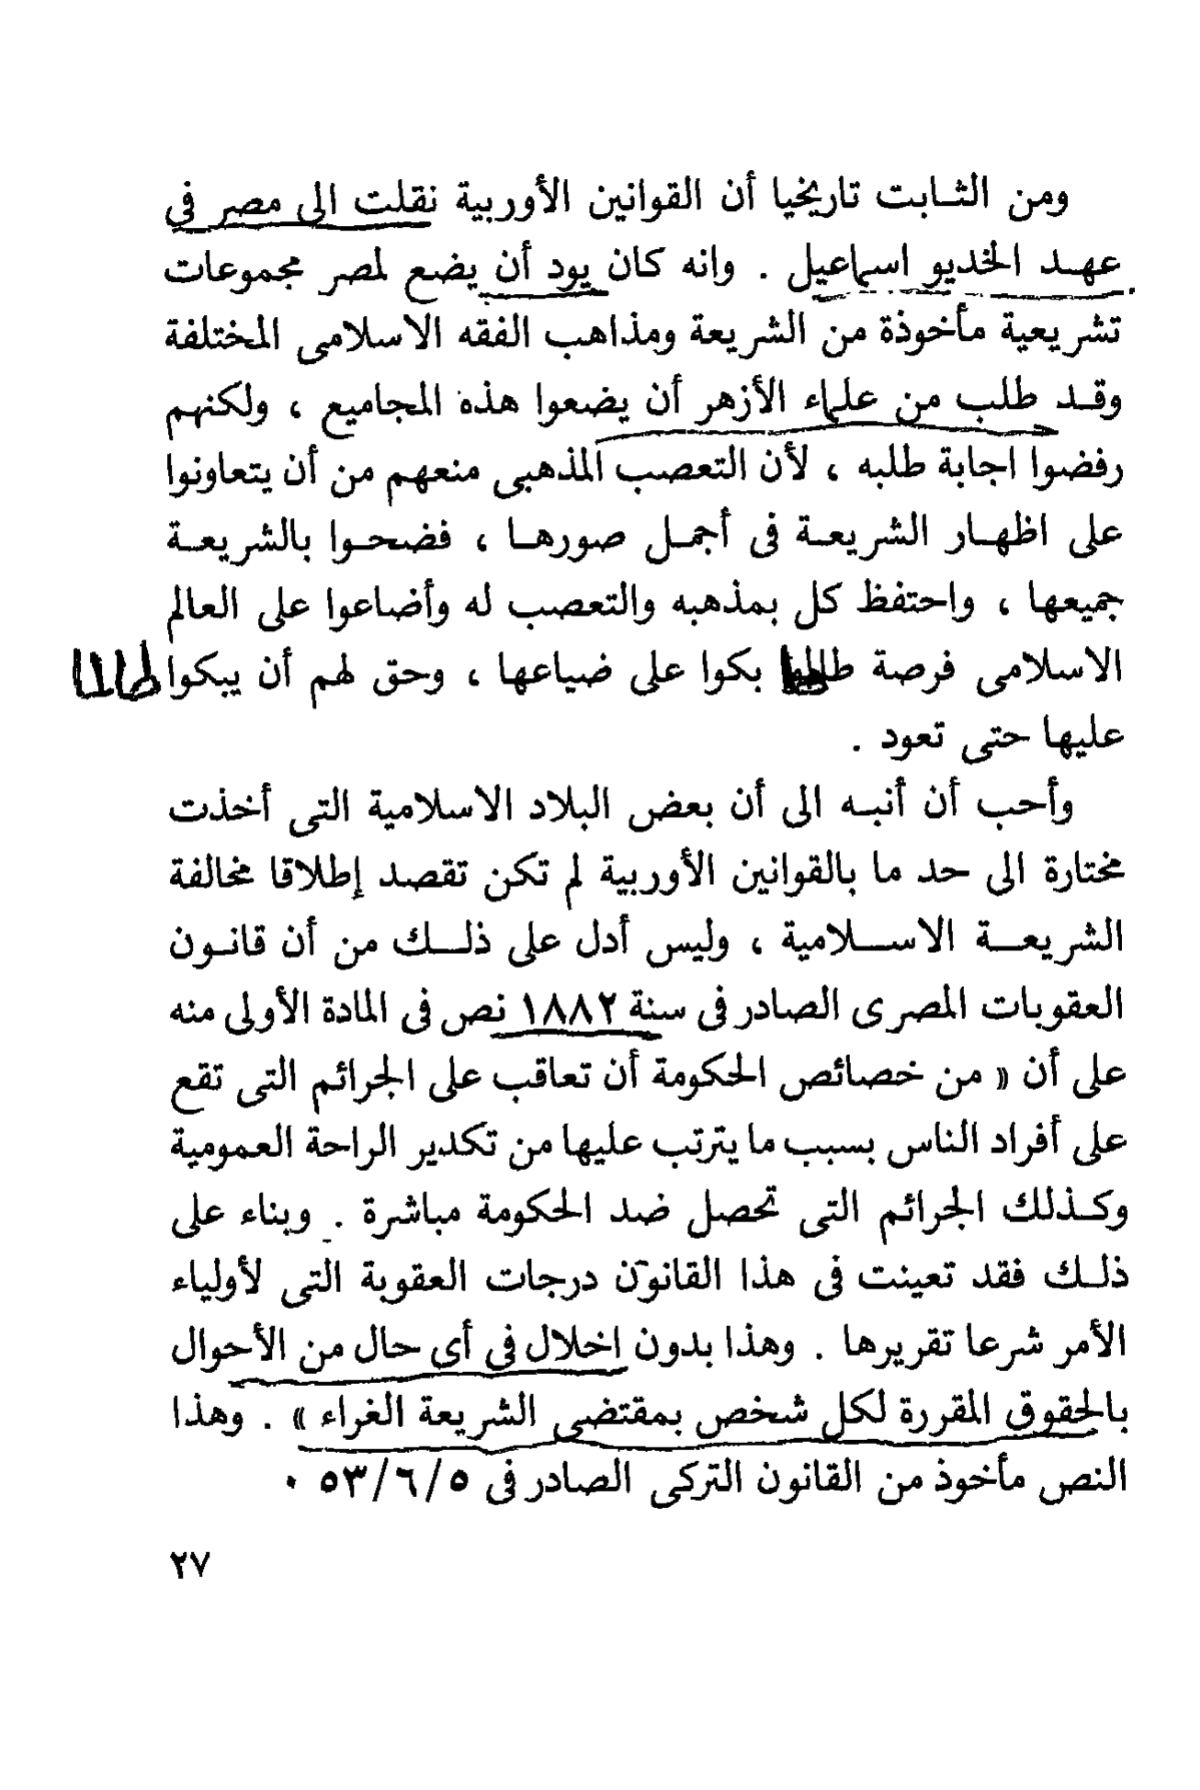 ومن الثابت تاريخيا أن القوانين الأوربية نقلت الى مصر فى
عهد الخديو اسماعيل . وانه كان يود أن يضع لمصر مجموعات
تشريعية مأخوذة من الشريعة ومذاهب الفقه الاسلامى المختلفة
وقد طلب من علماء الأزهر أن يضعوا هذه المجاميع ، ولكنهم
رفضوا اجابة طلبه ، لأن التعصب المذهبى منعهم من أن يتعاونوا
على اظهار الشريعة فى أجمل صورها ، فضحوا بالشريعة
جميعها ، واحتفظ كل بمذهبه والتعصب له وأضاعوا على العالم
الاسلامى فرصة طالما بكوا على ضياعها ، وحق لهم أن يبكوا طالما
عليها حتى تعود .
وأحب أن أنبه الى أن بعض البلاد الاسلامية التى أخذت
مختارة الى حد ما بالقوانين الأوربية لم تكن تقصد إطلاقا مخالفة
الشريعة الاسلامية ، وليس أدل على ذلك من أن قانون
العقوبات المصرى الصادر فى سنة ١٨٨٢ نص فى المادة الأولى منه
على أن « من خصائص الحكومة أن تعاقب على الجرائم التى تقع
على أفراد الناس بسبب ما يترتب عليها من تكدير الراحة العمومية
وكذلك الجرائم التى تحصل ضد الحكومة مباشرة . وبناء على
ذلك فقد تعينت فى هذا القانون درجات العقوبة التى لأولياء
الأمر شرعا تقريرها . وهذا بدون اخلال فى أى حال من الأحوال
بالحقوق المقررة لكل شخص بمقتضى الشريعة الغراء » . وهذا
النص مأخوذ من القانون التركى الصادر فى ٥/٦/٥٣ .
٢٧